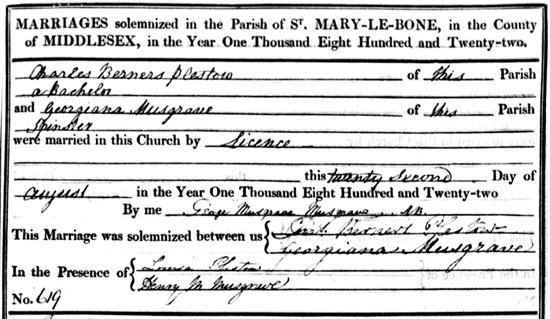 MARRIAGES solemnized in the Parish of ST. MARY-LE-BONE, in the County
of MIDDLESEX, in the Year One Thousand Eight Hundred and Twenty-two.
Charles Berners Plestow of this Parish
a Bachelor
and Georgiana Musgrave of this Parish
Spinster
were married in this Church by Licence
this twenty second Day of
August in the Year One Thousand Eight Hundred and Twenty-two
By me George Musgrave Musgrave
This Marriage was solemnized between us Berners Plestow
Georgiana Musgrave
In the Presence of Louisa Plestow
Henry M Musgrave
No. 619